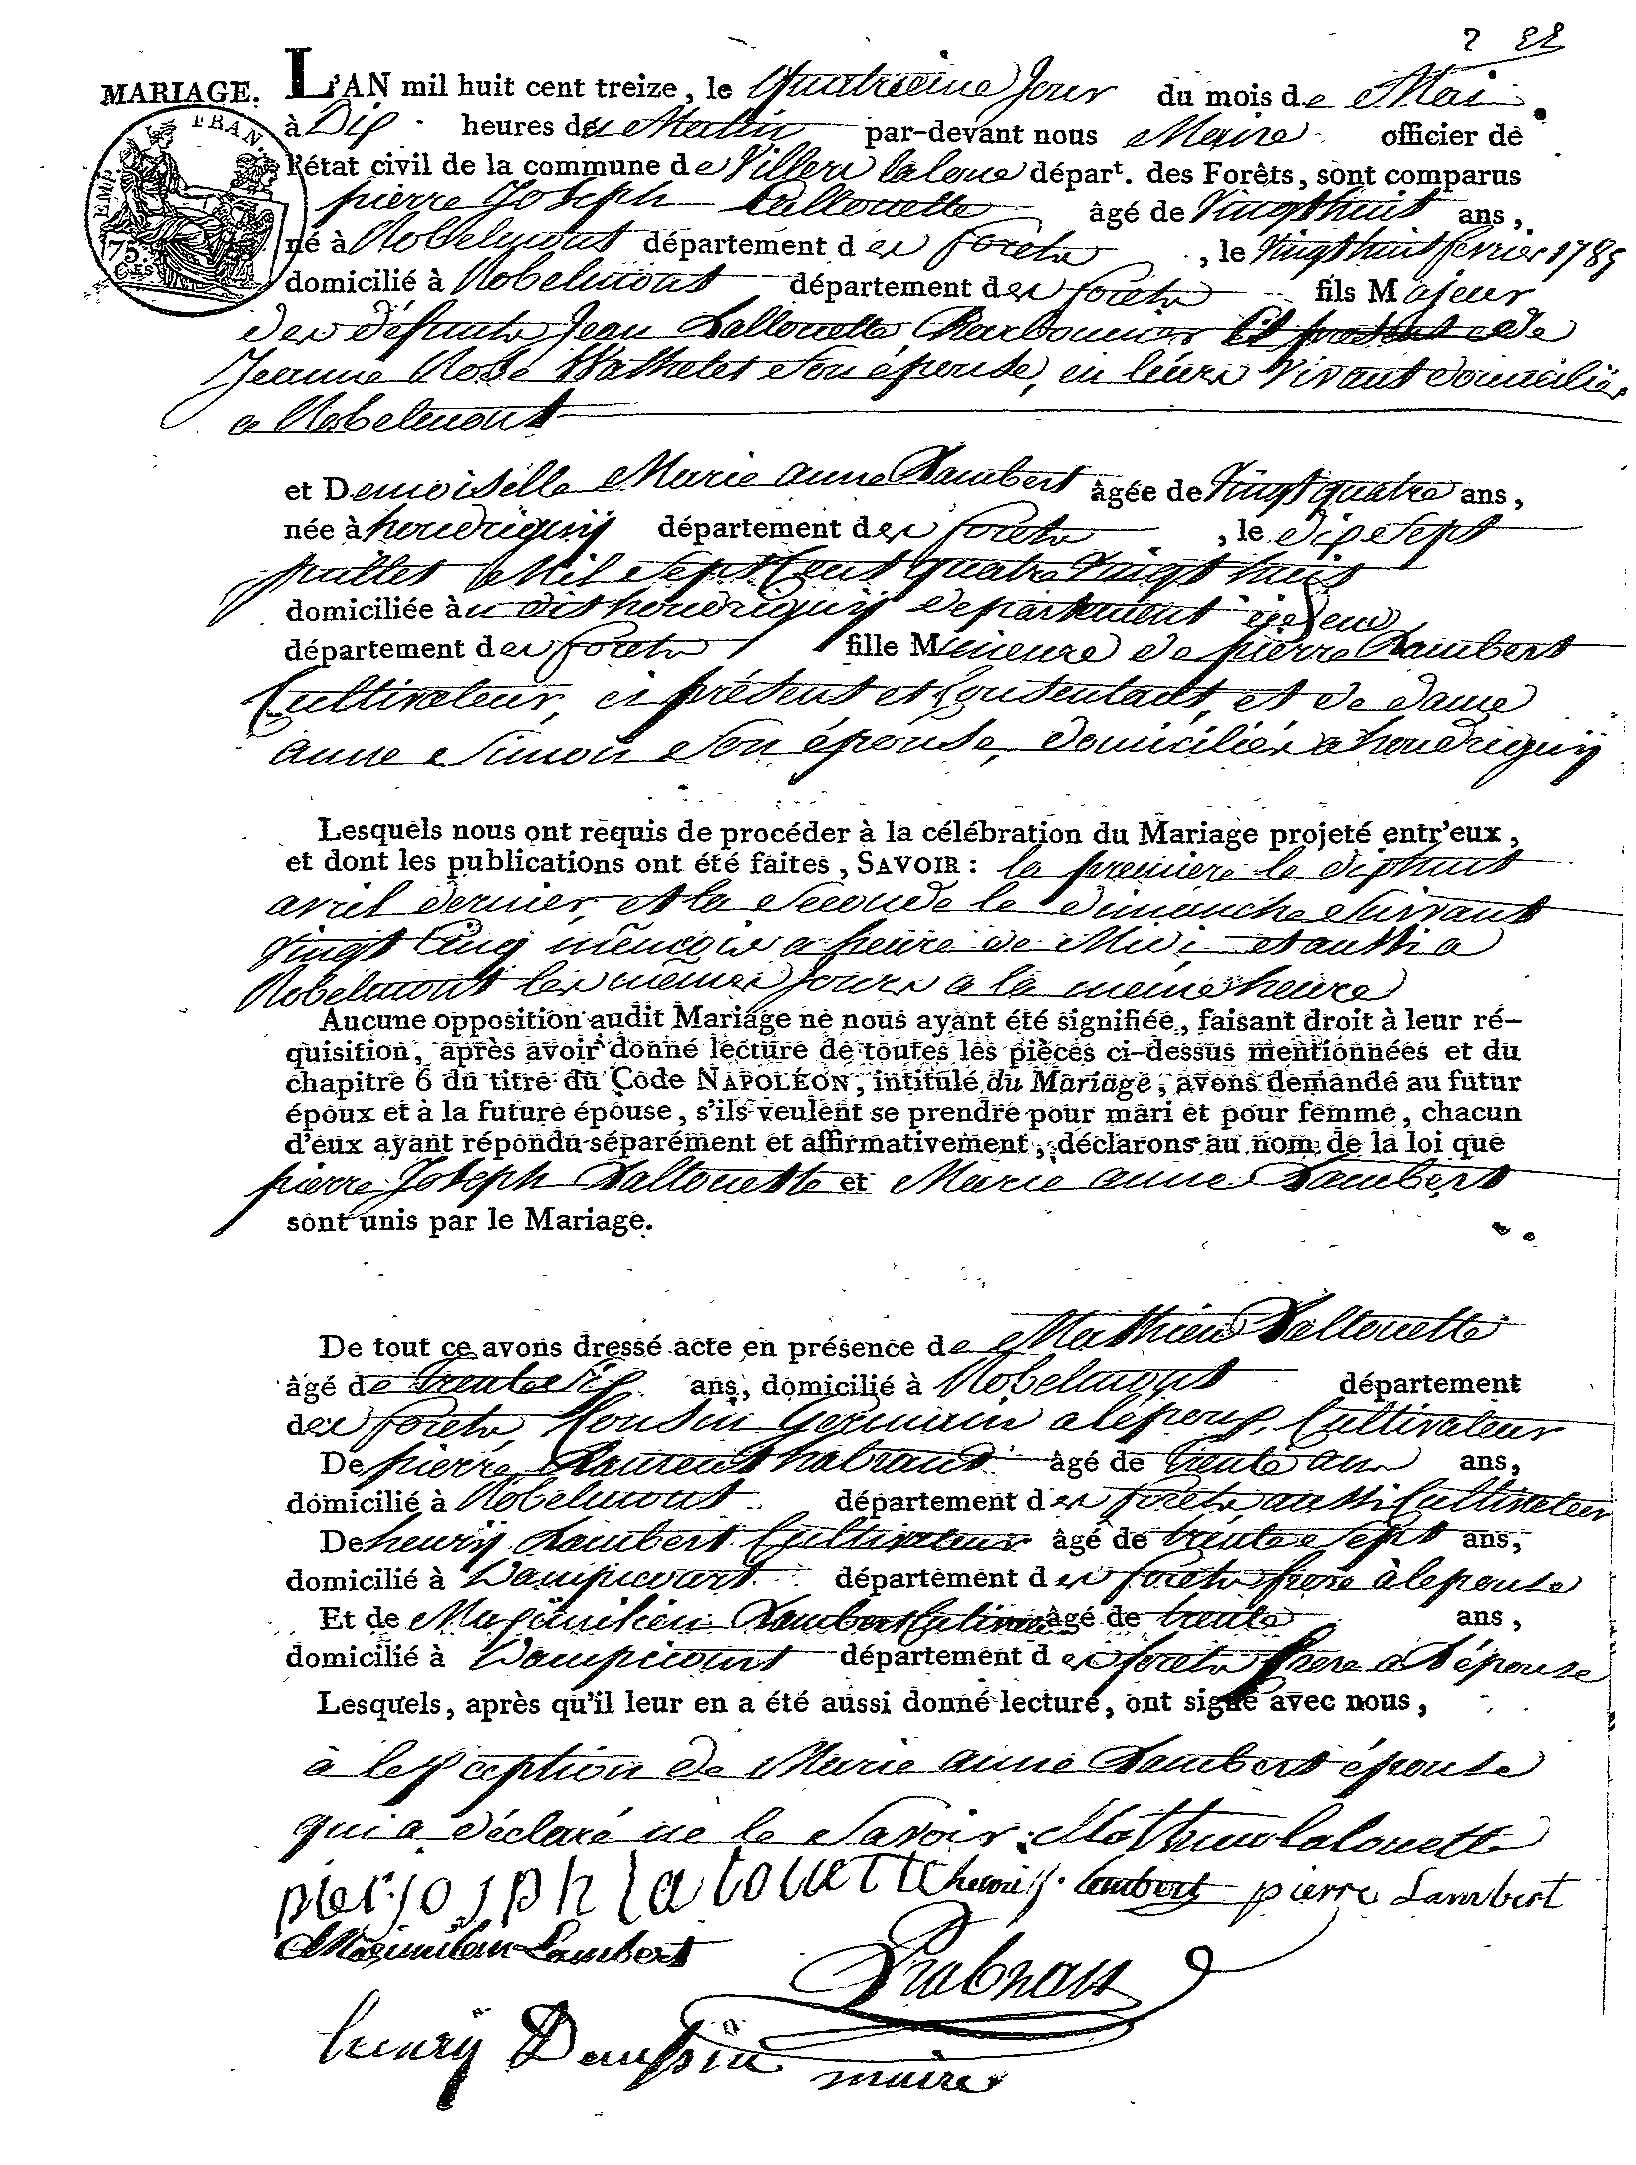 2 22
MARIAGE. L'AN mil huit cent treize, le Quatrieme Jour du mois de Mai
à Dix heures du Matin par-devant nous Maire officier de
l'état civil de la commune de Villers laloue départ. des Forêts, sont comparus
pierre Joseph Lallouette âgé de Vingt huit ans,
né à Robelmont département des forets, le Vingt huit fevrier 1785
domicilié à Robelmont département des forets fils Majeur
des défunts Jean Lallouette Charbonnier et de
Jeanne Rose Wathelet son épouse, en leurs Vivant domiciliés
a Robelmont
et Demoiselle Marie anne Lambert âgée de Vingt quatre ans,
née à houdrigny département des forets, le dix sept
juillet Mil Sept Cent quatre Vingt huit
domiciliée àu dit houdrigny departement
département des forets fille Mineure de pierre Lambert
Cultivateur, ci présent et Consentant, et de dame
anne Simon son épouse, domiciliés a houdrigny
Lesquels nous ont requis de procéder à la célébration du Mariage projeté entr'eux,
et dont les publications ont été faites, SAVOIR : la premiere le dix huit
avril dernier, et la Seconde le dimanche suivant
Vingt Cinq a heure de Midi et aussi a
Robelmont les mêmes jours a la meme heure
Aucune opposition audit Mariage ne nous ayant été signifiée, faisant droit à leur ré-
quisition, après avoir donné lecture de toutes les pièces ci-dessus mentionnées et du
chapitre 6 du titre du Code NAPOLÉON, intitulé du Mariage, avons demandé au futur
époux et à la future épouse, s'ils veulent se prendre pour mari et pour femme, chacun
d'eux ayant répondu séparément et affirmativement, déclarons au nom de la loi que
pierre Joseph Lallouette et Marie anne Lambert
sont unis par le Mariage.
De tout ce avons dressé acte en présence de Mathieu Lallouette
âgé de trente Six ans, domicilié à Robelmont département
des forets, Cousin Germain a lépoux, Cultivateur
De pierre Laurent âgé de trente ans,
domicilié à Robelmont département des forets aussi Cultivateur
De henry Lambert Cultivateur âgé de trente Sept ans,
domicilié à Dampicourt département des forets frere à lepouse
Et de Maximilien Lambert âgé de trente ans,
domicilié à Dampicourt département des forets frere a l'épouse
Lesquels, après qu'il leur en a été aussi donné lecture, ont signé avec nous,
à lexception de Marie anne Lambert épouse
qui a déclaré ne le Savoir. Mathieu lalouette
pier josph lalouette henri lambert pierre Lambert
Maximilien Lambert
henry Daussin
maire
EMP. FRAN.
75. C.ES